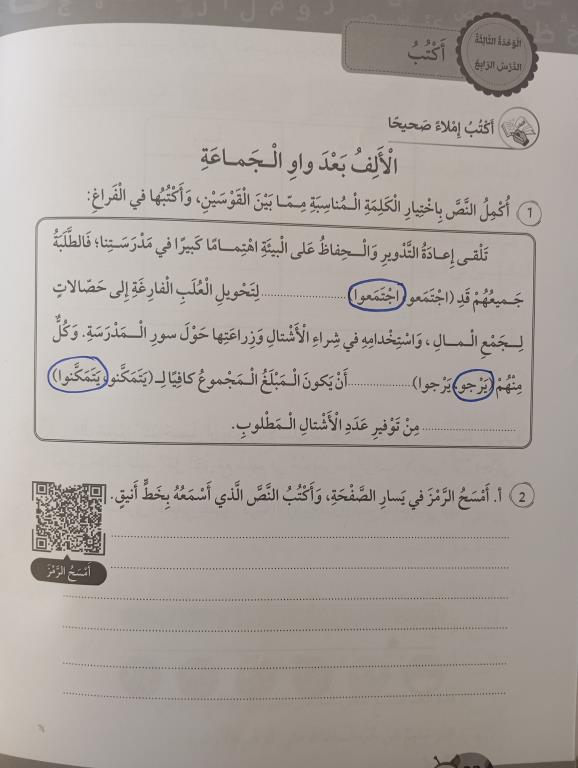 الْوَحْدَةُ الثّالِثَةُ
الدَّرْسُ الرّابِعُ
أَكْتُبُ
أَكْتُبُ إِمْلاءً صَحيحًا
الْأَلِفُ بَعْدَ واوِ الْـجَمـاعَةِ
1 أُكْمِلُ النَّصَّ بِاخْتِيارِ الْكَلِمَةِ الْـمُناسِبَةِ مِـمّـا بَيْنَ الْقَوْسَيْنِ، وَأَكْتُبُها في الْفَراغِ:
تَلْقـى إِعـادَةُ التَّدْويرِ وَالْـحِفاظُ عَلى الْبيئَةِ اهْتِمـامًا كَبيرًا في مَدْرَسَـتِنا؛ فَالطَّلَبَةُ
جَـميعُهُمْ قَدِ (اجْتَمَعو، اجْتَمَعوا) .......................... لِتَحْويلِ الْعُلَبِ الْفارِغَةِ إِلى حَصّالاتٍ
لِـجَمْعِ الْـمـالِ، وَاسْتِخْدامِهِ في شِراءِ الْأَشْتالِ وَزِراعَتِها حَوْلَ سورِ الْـمَدْرَسَةِ. وَكُلٌّ
مِنْهُمْ (يَرْجو، يَرْجوا) .................... أَنْ يَكونَ الْـمَبْلَغُ الْـمَجْموعُ كافِيًا لِـ (يَتَمَكَّنو، يَتَمَكَّنوا)
.......................... مِنْ تَوْفيرِ عَدَدِ الْأَشْتالِ الْـمَطْلوبِ.
2 أ. أَمْسَحُ الرَّمْزَ في يَسارِ الصَّفْحَةِ، وَأَكْتُبُ النَّصَّ الَّذي أَسْمَعُهُ بِخَطٍّ أَنيقٍ.
أَمْسَحُ الرَّمْزَ